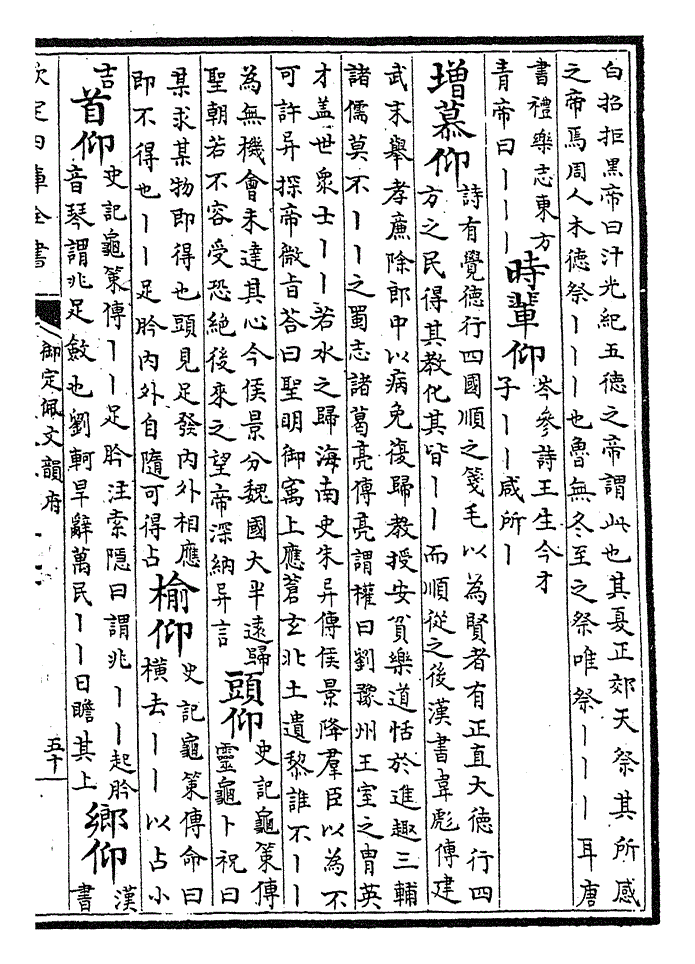 白招拒黑帝曰汁光紀五德之帝謂此也其夏正郊天祭其所感
之帝焉周人木德祭丨丨丨也魯無冬至之祭唯祭丨丨丨耳唐
書禮樂志東方
青帝曰丨丨丨
時輩仰
岑參詩王生今才
子丨丨咸所丨
增慕仰
詩有覺德行四國順之箋毛以為賢者有正直大德行四
方之民得其教化其皆丨丨而順從之後漢書韋彪傳建
武末舉孝廉除郎中以病免復歸教授安貧樂道恬於進趣三輔
諸儒莫不丨丨之蜀志諸葛亮傳亮謂權曰劉豫州王室之胄英
才蓋世衆士丨丨若水之歸海南史朱异傳侯景降羣臣以為不
可許异探帝微旨荅曰聖明御寓上應蒼玄北土遺黎誰不丨丨
為無機會未達其心今侯景分魏國大半遠歸
聖朝若不容受恐絕後來之望帝深納异言
頭仰
史記龜策傳
靈龜卜祝曰
某求某物即得也頭見足發內外相應
即不得也丨丨足肣內外自隨可得占
榆仰
史記龜策傳命曰
橫去丨丨以占小
吉
首仰
史記龜策傳丨丨足肣注索隱曰謂兆丨丨起肣
音琴謂兆足斂也劉軻旱辭萬民丨丨日瞻其上
鄉仰
漢
書
欽定四庫全書
御定佩文韻府
五十